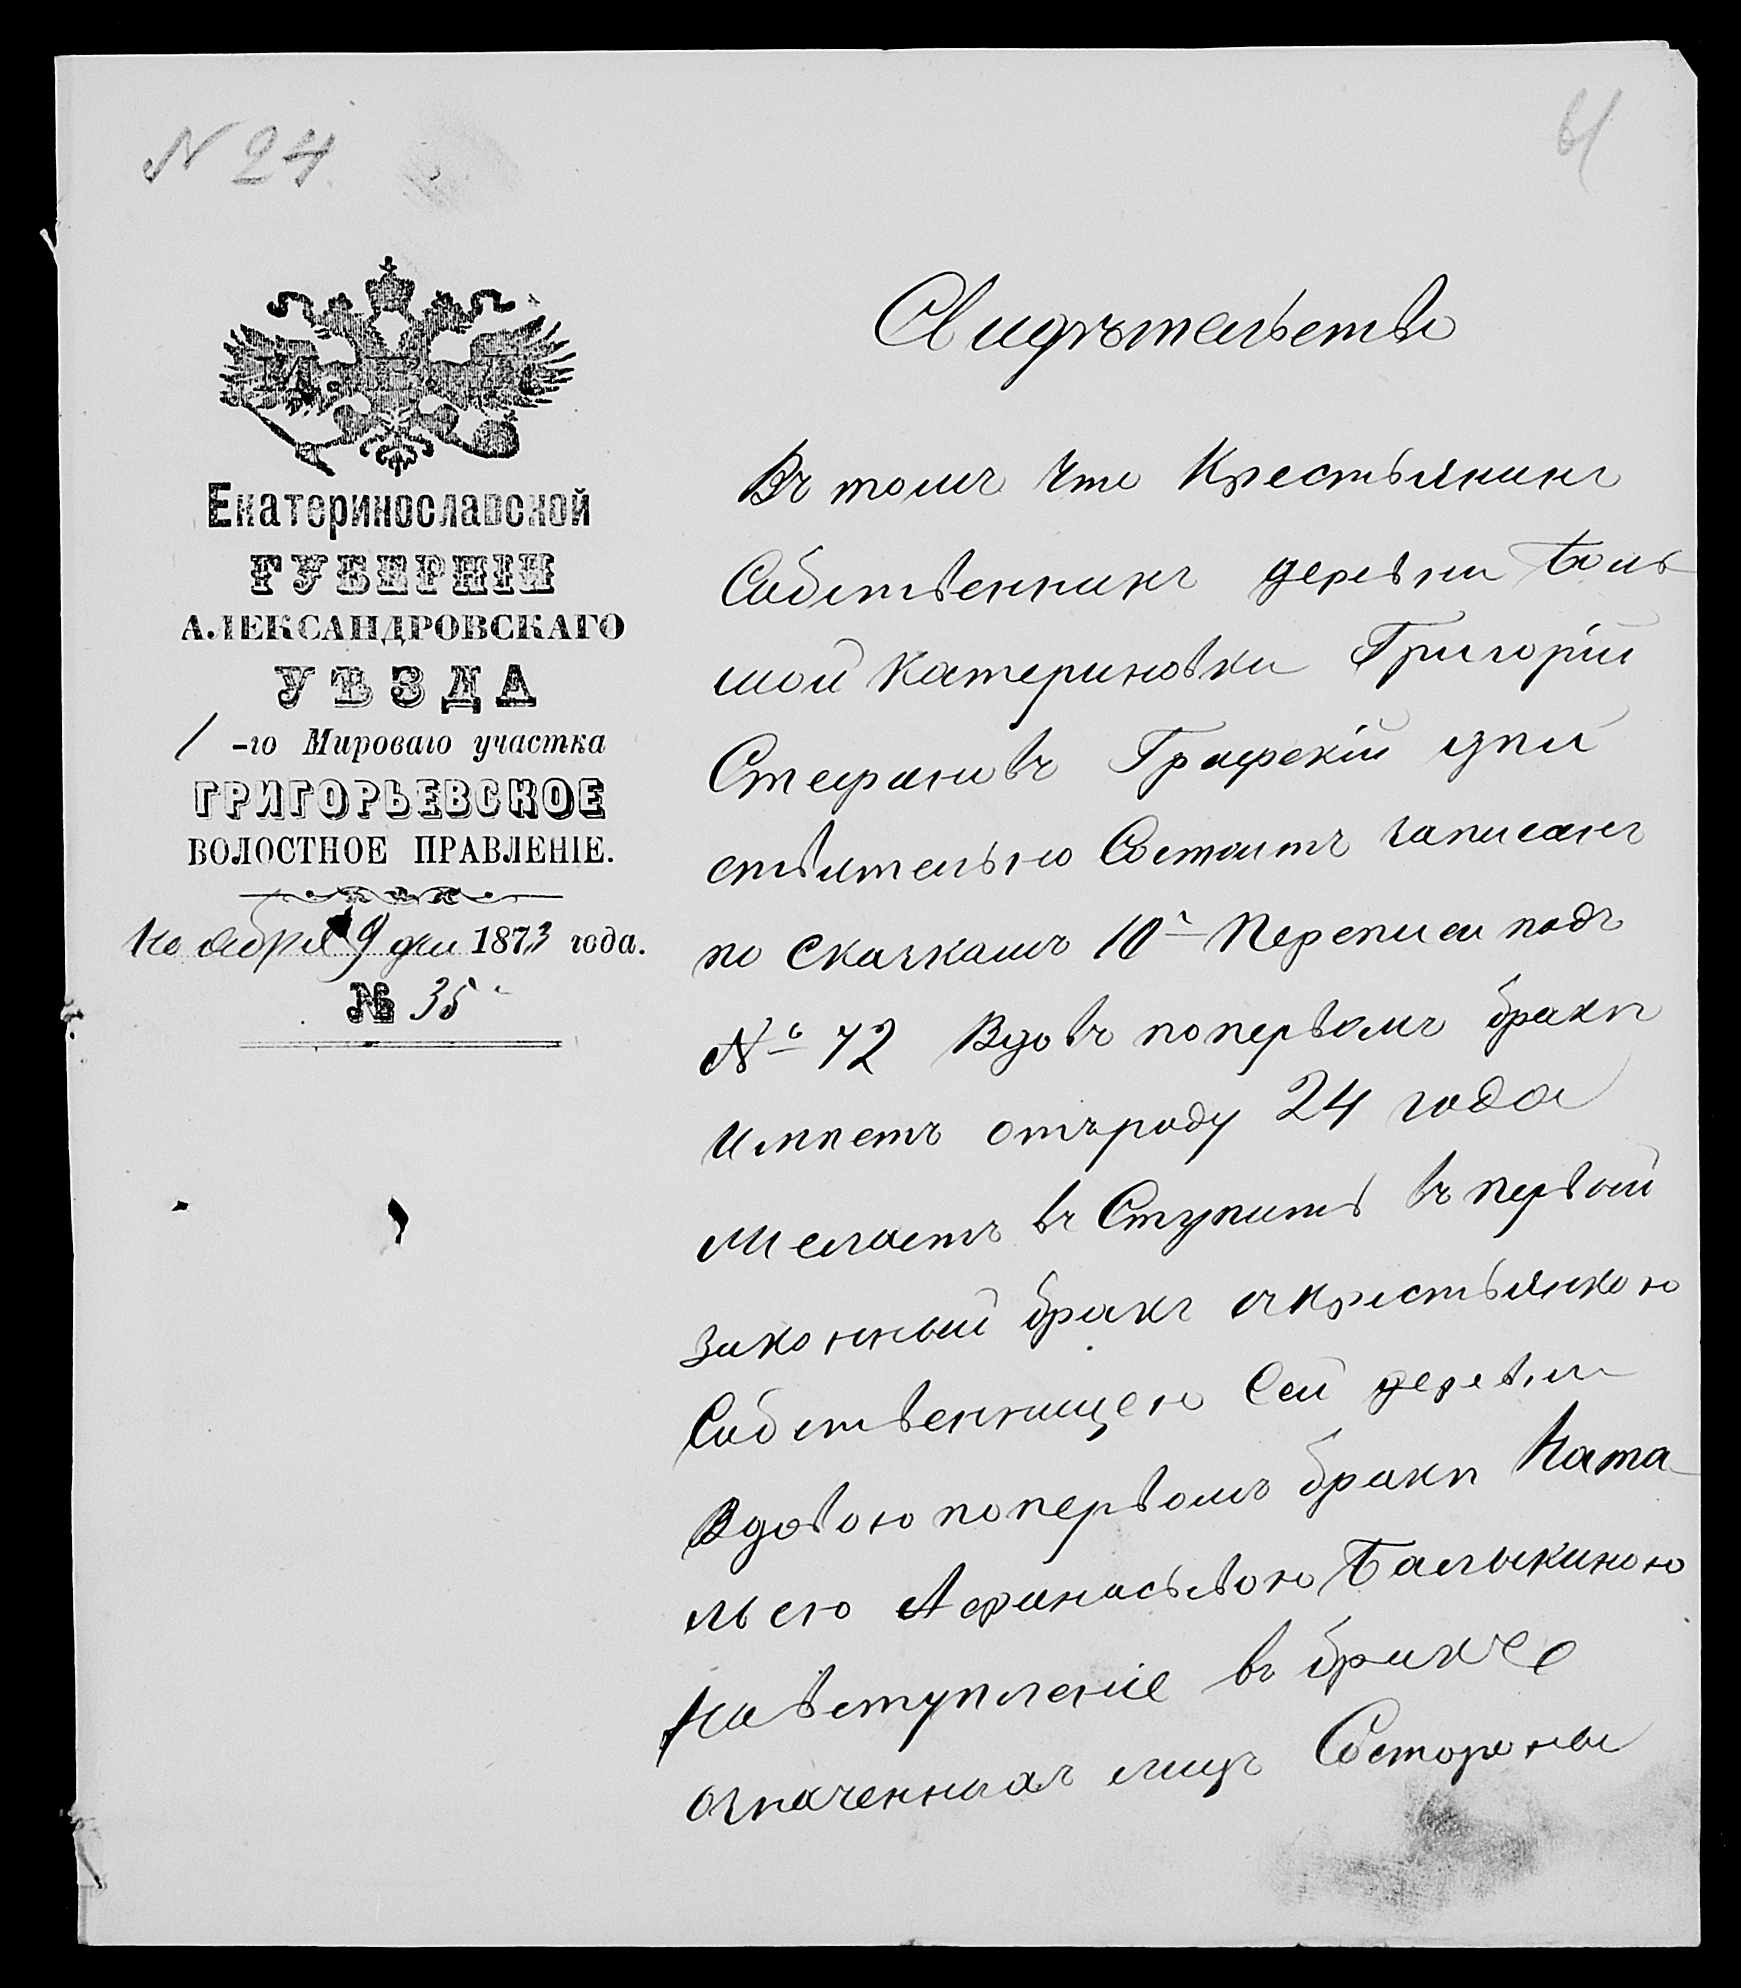 N 24
Екатеринославской
ГУБЕРНІИ
АЛЕКСАНДРОВСКАГО
УѢЗДА
1 -го Мироваго участка
ГРИГОРЬЕВСКОЕ
ВОЛОСТНОЕ ПРАВЛЕНІЕ.
Ноября 9 дня 1873 года.
№ 35
Свидѣтельство
Въ томъ что Крестьянинъ
Собственникъ деревни Боль
шой Катериновки Григорій
Стефановъ Графскій дѣй
ствительно Состоитъ записанъ
по Сказкамъ 10й Переписи подъ
№ 72 Вдовъ по первомъ бракѣ
имѣетъ отъ роду 24 года
желаетъ въ Ступить въ первый
законный бракъ съ крестьянкою
Собственницею Сей деревни
Вдовою по первомъ бракѣ Ната-
льею Афанасьевою Балыкиною
На вступленіе въ бракъ
означенныхъ лицъ Состороны